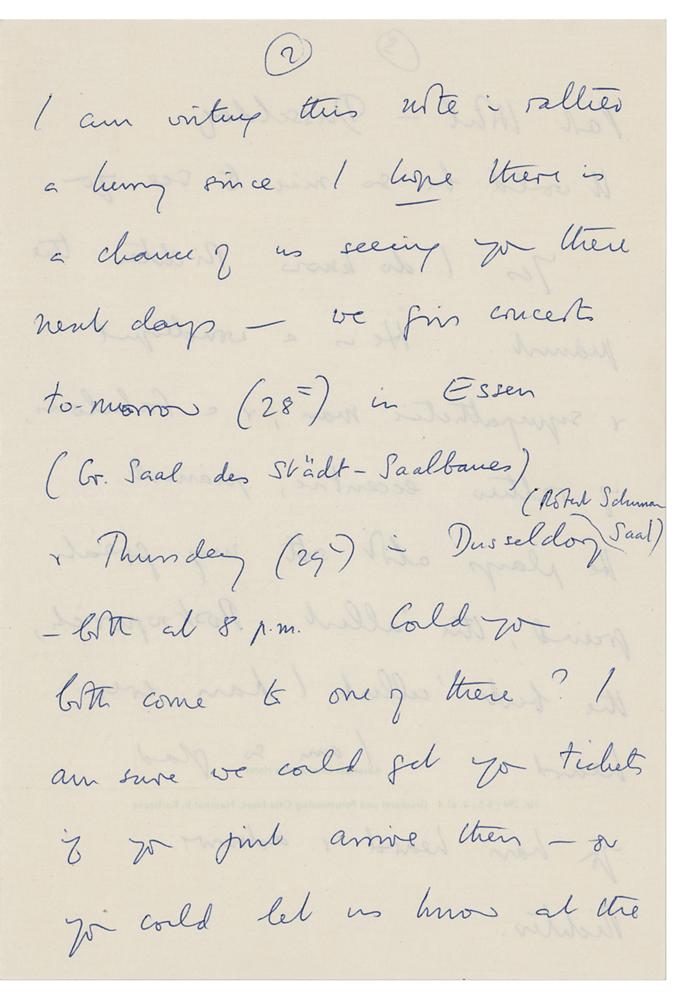 ②
I am writing this note in rather
a hurry since I hope there is
a chance of us seeing you these
next days — we give concerts
to-morrow (28th) in Essen
(Gr. Saal des Städt-Saalbaues)
(Robert Schuman
& Thursday (29th) in Dusseldorf Saal)
- both at 8 p.m. Could you
both come to one of these? I
am sure we could get you tickets
if you just arrive there — or
you could let us know at the